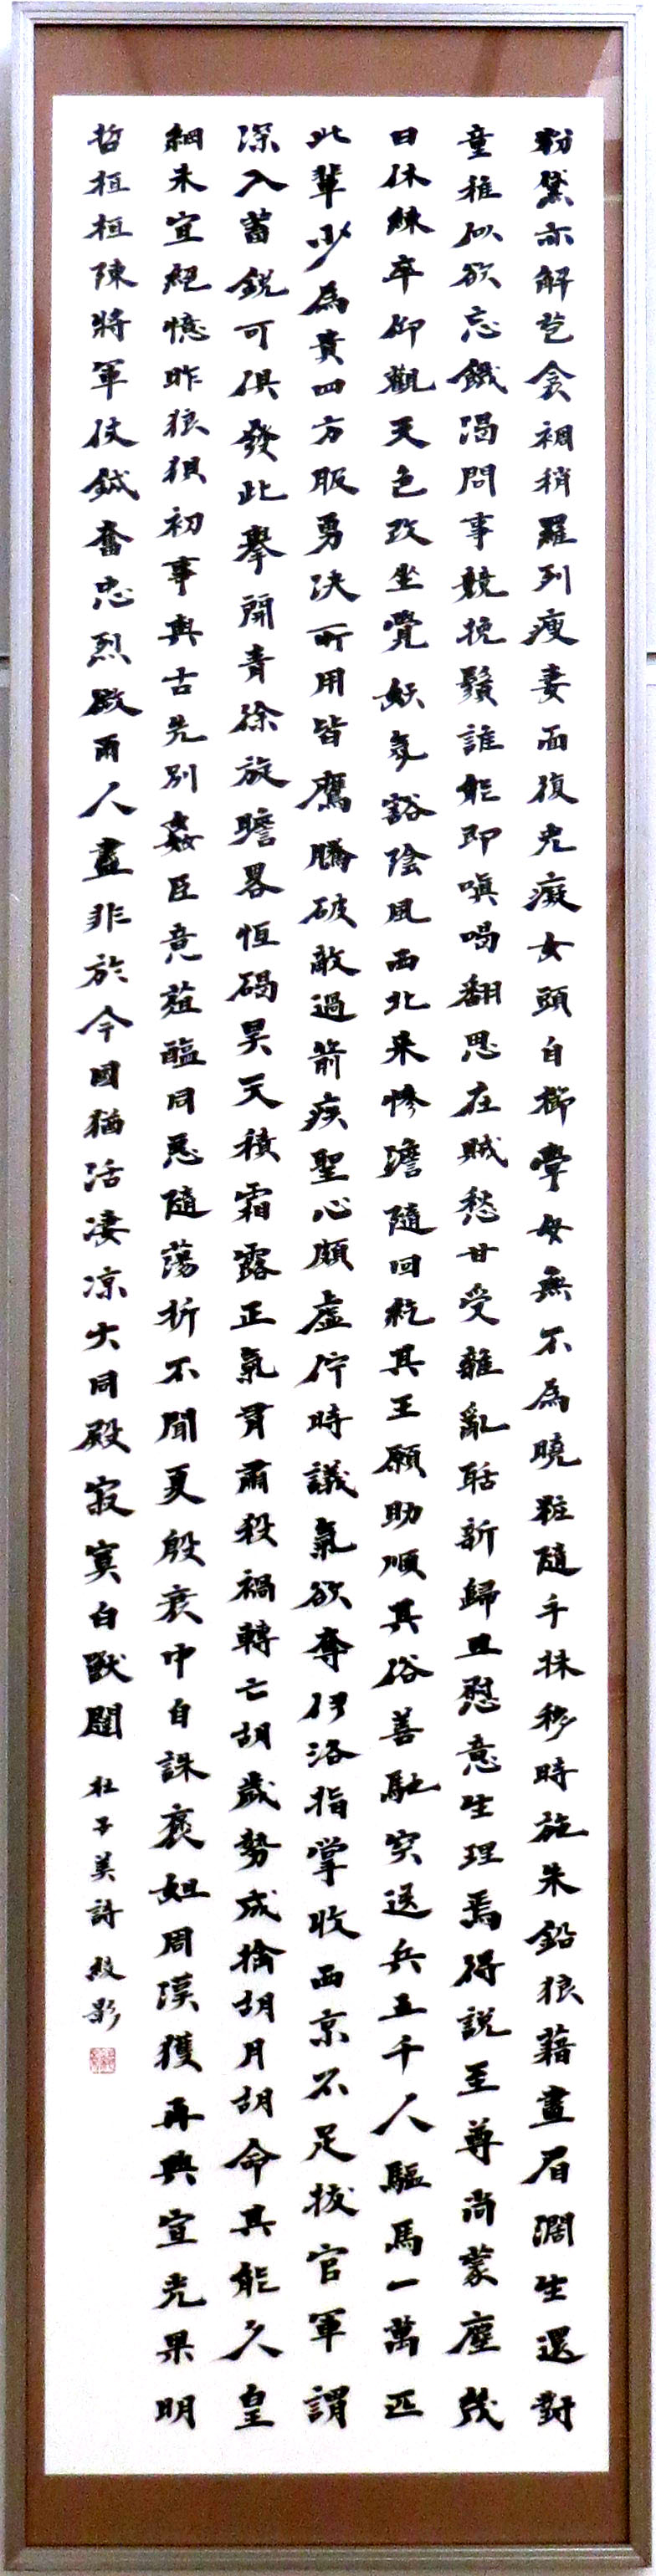 粉黛亦解苞衾裯稍羅列瘦妻面復光癡女頭自櫛學母無不為曉粧隨手抹移時施朱鉛狼藉畫眉濶生還對
童稚似欲忘饑渴問事競挽鬚誰能即嗔喝翻思在賊愁甘受雜亂聒新歸且慰意生理焉得說至尊尚蒙塵幾
日休練卒仰觀天色改坐覺妖氛豁陰風西北來慘澹隨回紇其王願助順其俗善馳突送兵五千人驅馬一萬匹
此輩少為貴四方服勇決所用皆鷹騰破敵過箭疾聖心頗虛佇時議氣欲奪伊洛指掌收西京不足拔官軍請
深入蓄銳可俱發此舉開青徐旋瞻略恒碣昊天積霜露正氣有肅殺禍轉亡胡歲勢成擒胡月胡命其能久皇
綱未宜絕憶昨狼狽初事與古先別姦臣竟菹醢同惡隨蕩析不聞夏殷衰中自誅褒妲周漢獲再興宣光果明
哲桓桓陳將軍仗鉞奮忠烈微爾人盡非於今國猶活淒涼大同殿寂寞白獸闥
杜子美詩 級影